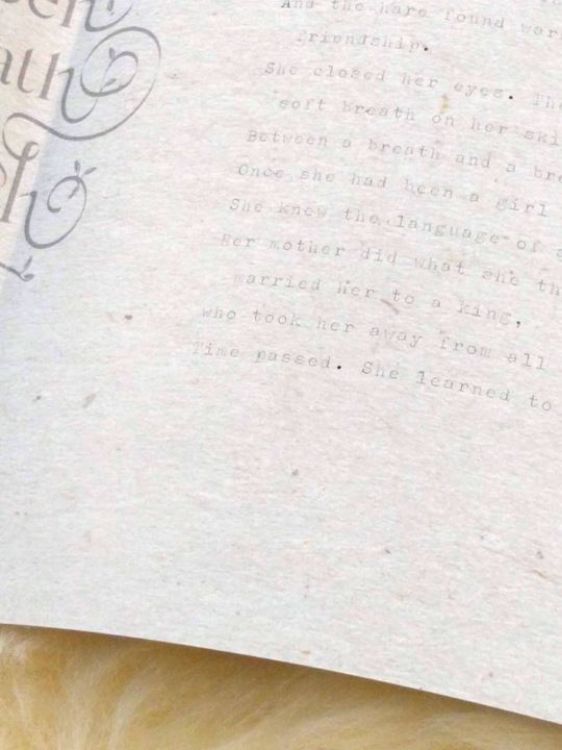 ath
And the hare found
friendship.
She closed her eyes. The
soft breath on her
Between a breath and a
Once she had been a girl
She knew the language of
Her mother did what she
married her to a king,
who took her away from all
Time passed. She learned to